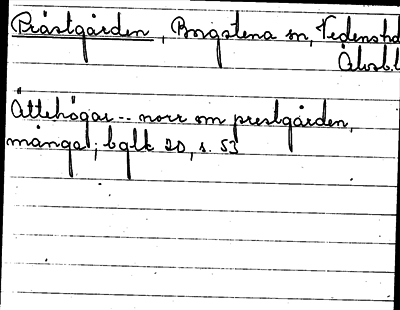 Prästgården, Borgstena sn, Vedens hd
Älvsb.l
Ättehögar -- norr om prestgården,
många; bglt 20, s. 53